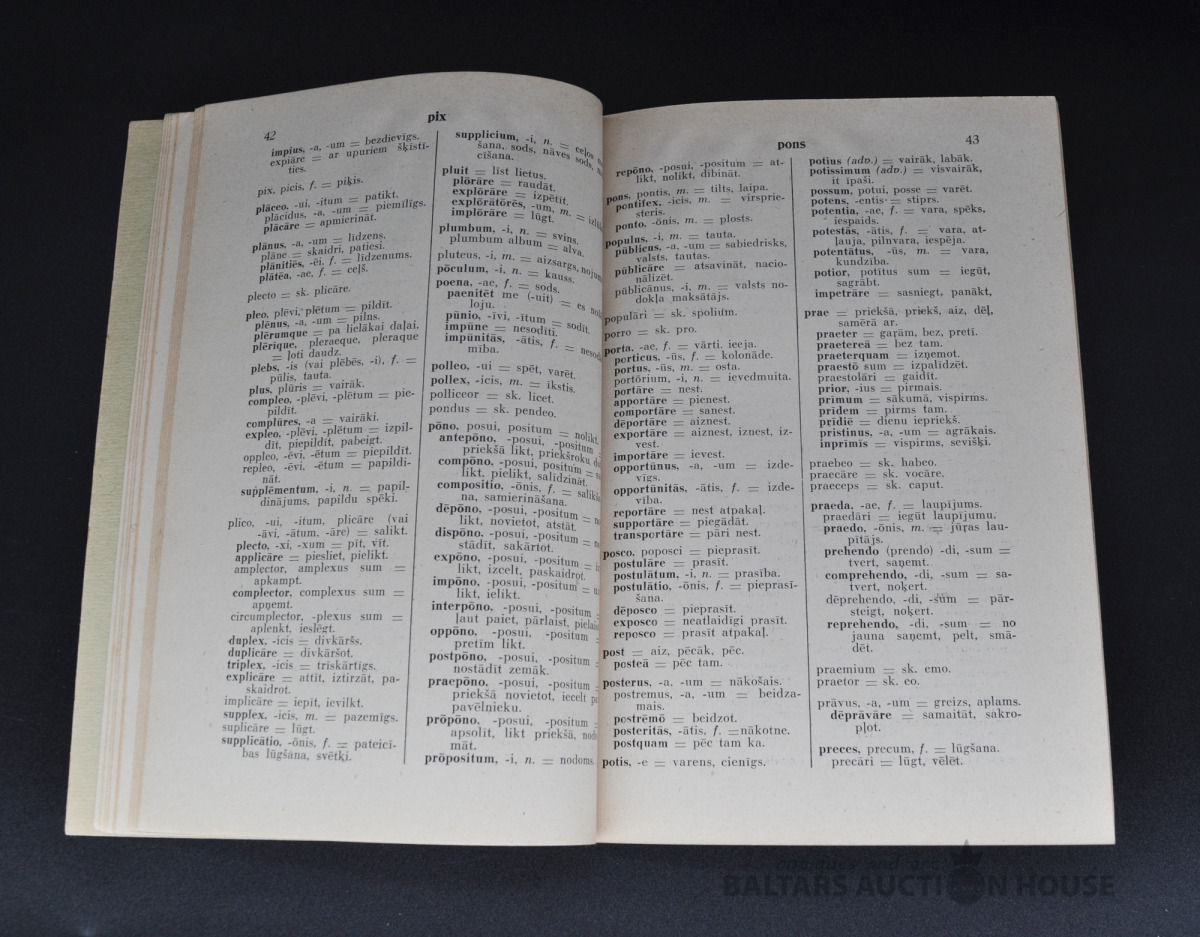 42
pix
impius, -a, -um = bezdievīgs.
expiāre = ar upuriem šķīstī-
ties.
pix, picis, f. = piķis.
plăceo, -ui, -itum = patikt.
plăcidus, -a, -um = piemīlīgs.
plācāre = apmierināt.
plānus, -a, -um = līdzens.
plāne = skaidri, patiesi.
plānitiēs, -ēi, f. = līdzenums.
plătēa, -ae, f. = ceļš.
plecto = sk. plicāre.
pleo, plēvi, plētum = pildīt.
plēnus, -a, -um = pilns.
plērumque = pa lielākai daļai,
plērique, pleraeque, pleraque
= ļoti daudz.
plebs, -is (vai plēbēs, -i), f. =
pūlis, tauta.
plus, plūris = vairāk.
compleo, -plēvi, -plētum = pie-
pildīt.
complūres, -a = vairāki.
expleo, -plēvi, -plētum = izpil-
dīt, piepildīt, pabeigt.
oppleo, -ēvi, -ētum = piepildīt.
repleo, -ēvi, -ētum = papildi-
nāt.
supplēmentum, -i, n. = papil-
dinājums, papildu spēki.
plico, -ui, -itum, plicāre (vai
-āvi, -ātum, -āre) = salikt.
plecto, -xi, -xum = pīt, vīt.
applicāre = piesliet, pielikt.
amplector, amplexus sum =
apkampt.
complector, complexus sum =
apņemt.
circumplector, -plexus sum =
aplenkt, ieslēgt.
duplex, -icis = divkāršs.
duplicāre = divkāršot.
triplex, -icis = trīskārtīgs.
explicāre = attīt, iztirzāt, pa-
skaidrot.
implicāre = iepīt, ievilkt.
supplex, -icis, m. = pazemīgs.
suplicāre = lūgt.
supplicātio, -ōnis, f. = pateicī-
bas lūgšana, svētki.
supplicium, -i, n. = ceļos
šana, sods, nāves sods,
cīšana.
pluit = līst lietus.
plōrāre = raudāt.
explōrāre = izpētīt.
explōrātōrēs, -um, m. =
implōrāre = lūgt.
plumbum, -i, n. = svins.
plumbum album = alva.
pluteus, -i, m. = aizsargs,
pōculum, -i, n. = kauss.
poena, -ae, f. = sods.
paenitēt me (-uit) = es
loju.
pūnio, -īvi, -ītum = sodīt.
impūne = nesodīti.
impūnitās, -ātis, f. =
mība.
polleo, -ui = spēt, varēt.
pollex, -icis, m. = īkstis.
polliceor = sk. licet.
pondus = sk. pendeo.
pōno, posui, positum = nolikt.
antepōno, -posui, -positum =
priekšā likt, priekšroku
compōno, -posui, positum =
likt, pielikt, salīdzināt.
compositio, -ōnis, f. =
na, samierināšana.
dēpōno, -posui, -positum =
likt, novietot, atstāt.
dispōno, -posui, -positum =
stādīt, sakārtot.
expōno, -posui, -positum =
likt, izcelt, paskaidrot.
impōno, -posui, -positum =
likt, ielikt.
interpōno, -posui, -positum =
ļaut paiet, pārlaist,
oppōno, -posui, -positum =
pretim likt.
postpōno, -posui, -positum =
nostādīt zemāk.
praepōno, -posui, -positum =
priekšā novietot, iecelt
pavēlnieku.
prōpōno, -posui, -positum =
apsolīt, likt priekšā,
māt.
prōpositum, -i, n. = nodoms.
pons
43
repōno, -posui, -positum = at-
likt, nolikt, dibināt.
pons, pontis, m. = tilts, laipa.
pontifex, -icis, m. = virsprie-
steris.
ponto, -ōnis, m. = plosts.
populus, -i, m. = tauta.
pūblicus, -a, -um = sabiedrisks,
valsts, tautas.
pūblicāre = atsavināt, nacio-
nālizēt.
pūblicānus, -i, m. = valsts no-
dokļa maksātājs.
populāri = sk. spolium.
porro = sk. pro.
porta, -ae, f. = vārti, ieeja.
porticus, -ūs, f. = kolonāde.
portus, -ūs, m. = osta.
portōrium, -i, n. = ievedmuita.
portāre = nest.
apportāre = pienest.
comportāre = sanest.
dēportāre = aiznest.
exportāre = aiznest, iznest, iz-
vest.
importāre = ievest.
opportūnus, -a, -um = izde-
vīgs.
opportūnitās, -ātis, f. = izde-
vība.
reportāre = nest atpakaļ.
supportāre = piegādāt.
transportāre = pāri nest.
posco, poposci = pieprasīt.
postulāre = prasīt.
postulātum, -i, n. = prasība.
postulātio, -ōnis, f. = pieprasī-
šana.
dēposco = pieprasīt.
exposco = neatlaidīgi prasīt.
reposco = prasīt atpakaļ.
post = aiz, pēcāk, pēc.
posteā = pēc tam.
posterus, -a, -um = nākošais.
postremus, -a, -um = beidza-
mais.
postrēmō = beidzot.
posteritās, -ātis, f. =nākotne.
postquam = pēc tam ka.
potis, -e = varens, cienīgs.
potius (adv.) = vairāk, labāk.
potissimum (adv.) = visvairāk,
it īpaši.
possum, potui, posse = varēt.
potens, -entis = stiprs.
potentia, -ae, f. = vara, spēks,
iespaids.
potestās, -ātis, f. = vara, at-
ļauja, pilnvara, iespēja.
potentātus, -ūs, m. = vara,
kundzība.
potior, potītus sum = iegūt,
sagrābt.
impetrāre = sasniegt, panākt,
prae = priekšā, priekš, aiz, dēļ,
samērā ar.
praeter = garām, bez, preti.
praetereā = bez tam.
praeterquam = izņemot.
praestō sum = izpalīdzēt.
praestolāri = gaidīt.
prior, -ius = pirmais.
prīmum = sākumā, vispirms.
prīdem = pirms tam.
prīdiē = dienu iepriekš.
pristinus, -a, -um = agrākais.
inprimis = vispirms, sevišķi.
praebeo = sk. habeo.
praecāre = sk. vocāre.
praeceps = sk. caput.
praeda, -ae, f. = laupījums.
praedāri = iegūt laupījumu.
praedo, -ōnis, m. = jūŗas lau-
pītājs.
prehendo (prendo) -di, -sum =
tvert, saņemt.
comprehendo, -di, -sum = sa-
tvert, noķert.
dēprehendo, -di, -sum = pār-
steigt, noķert.
reprehendo, -di, -sum = no
jauna saņemt, pelt, smā-
dēt.
praemium = sk. emo.
praetor = sk. eo.
prāvus, -a, -um = greizs, aplams.
dēprāvāre = samaitāt, sakro-
pļot.
preces, precum, f. = lūgšana.
precāri = lūgt, vēlēt.
BALTARS AUCTION HOUSE